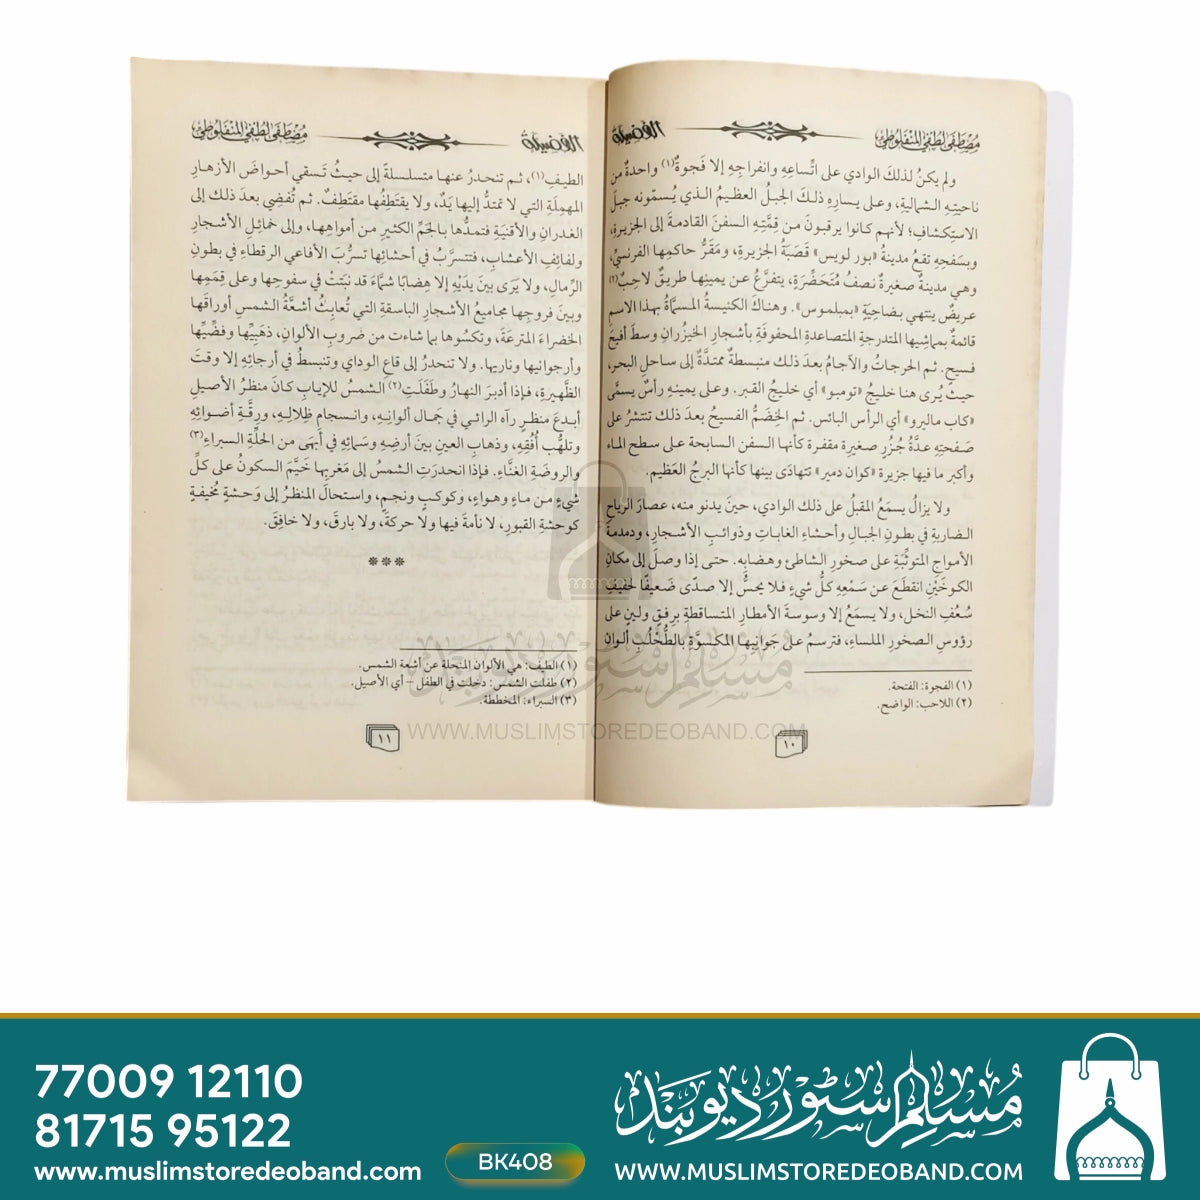 مصطفى لطفي المنفلوطي
الفضيلة
ولم يكنْ لذلكَ الوادي على اتِّساعِهِ وانفراجِهِ إلا فَجوةٌ(١) واحدةٌ من
ناحيتِهِ الشماليةِ، وعلى يسارِهِ ذلكَ الجبلُ العظيمُ الذي يُسمّونه جبلَ
الاستكشافِ؛ لأنهم كانوا يرقبونَ من قِمَّتِهِ السفنَ القادمةَ إلى الجزيرةِ،
وبسَفحِهِ تقعُ مدينةُ «بور لويس» قَصَبَةُ الجزيرةِ، ومَقَرُّ حاكمِها الفرنسيِّ،
وهي مدينةٌ صغيرةٌ نصفُ مُتَحَضِّرَةٍ، يتفرَّعُ عن يمينِها طريقٌ لاحِبٌ(٢)
عريضٌ ينتهي بضاحيَةِ «بمبلموس». وهناكَ الكنيسةُ المسمَّاةُ بهذا الاسمِ
قائمةٌ بمماشِيها المتدرجةِ المتصاعدةِ المحفوفَةِ بأشجارِ الخيزُرانِ وسطَ أفيحَ
فسيحٍ. ثم الحرجاتُ والآجامُ بعدَ ذلكَ منبسطةٌ ممتدَّةٌ إلى ساحلِ البحرِ،
حيثُ يُرى هنا خليجُ «تومبو» أي خليجُ القبرِ. وعلى يمينِهِ رأسٌ يسمَّى
«كاب مالبرو» أي الرأس البائس. ثم الخِضَمُّ الفسيحُ بعدَ ذلكَ تنتشرُ على
صَفحتِهِ عدَّةُ جُزُرٍ صغيرةٍ مقفرة كأنها السفن السابحة على سطح الماء
وأكبر ما فيها جزيرة «كوان دمير» تتهادَى بينها كأنها البرجُ العَظيم.
ولا يزالُ يسمَعُ المقبلُ على ذلك الوادي، حينَ يدنو منه، عصارَ الرياحِ
الضاربةِ في بطونِ الجبالِ وأحشاءِ الغاباتِ وذوائبِ الأشجارِ، ودمدمةَ
الأمواجِ المتوثِّبَةِ على صخورِ الشاطئِ وهضابِه. حتى إذا وصلَ إلى مكانِ
الكوخَيْنِ انقطَعَ عن سَمْعِهِ كلُّ شيءٍ فلا يحسُّ إلا صدًى ضَعيفًا لحفيفِ
سُعُفِ النخل، ولا يسمَعُ إلا وسوسةَ الأمطارِ المتساقطةِ برفقٍ ولينٍ على
رؤوسِ الصخورِ الملساءِ، فترسمُ على جَوانِبِها المكسوَّةِ بالطُّحْلُبِ ألوانَ
(١) الفجوة: الفتحة.
(٢) اللاحب: الواضح.
١٠
مصطفى لطفي المنفلوطي
الفضيلة
الطيفِ(١)، ثم تنحدرُ عنها متسلسلةً إلى حيثُ تَسقي أحواضَ الأزهارِ
المهمِلَةِ التي لا تمتدُّ إليها يَدٌ، ولا يقتَطِفُها مقتَطِفٌ. ثم تُفضِي بعدَ ذلك إلى
الغدرانِ والأقنيَةِ فتمدُّها بالجَمِّ الكثيرِ من أمواهِها، وإلى خمائلِ الأشجارِ
ولفائفِ الأعشابِ، فتتسرَّبُ في أحشائِها تسرُّبَ الأفاعي الرقطاءِ في بطونِ
الرِّمالِ، ولا يَرَى بينَ يدَيْهِ إلا هِضابًا شمَّاءَ قد نبتَتْ في سفوحِها وعلى قِمَمِها
وبينَ فروجِها مجاميعُ الأشجارِ الباسقةِ التي تُعابِثُ أشعَّةُ الشمسِ أوراقَها
الخضراءَ المترعَةَ، وتكسُوها بما شاءت من ضروبِ الألوانِ، ذهَبِيِّها وفضِّيِّها
وأرجوانيها وناريها. ولا تنحدرُ إلى قاعِ الوداي وتنبسطُ في أرجائِهِ إلا وقتَ
الظَّهيرةِ، فإذا أدبرَ النهارُ وطَفَلَتِ(٢) الشمسُ للإيابِ كانَ منظرُ الأصيلِ
أبدعَ منظرٍ رآه الرائي في جَمال ألوانِه، وانسجامِ ظلالِهِ، ورقَّةِ أضوائِهِ
وتلهُّب أُفُقِهِ، وذهابِ العينِ بينَ أرضِهِ وسَمائِهِ في أَبهَى من الحلَّةِ السبراءِ(٣)
والروضَةِ الغنَّاءِ. فإذا انحدرَتِ الشمسُ إلى مَغربِها خَيَّمَ السكونُ على كلِّ
شيءٍ من ماءٍ وهواءٍ، وكوكبٍ ونجمٍ، واستحالَ المنظرُ إلى وَحشةٍ مُخيفةٍ
كوحشةِ القبورِ، لا نأمةَ فيها ولا حركةَ، ولا بارقَ، ولا خافِقَ.
***
(١) الطيف: هي الألوان المنحلة عن أشعة الشمس.
(٢) طفلت الشمس: دخلت في الطفل – أي الأصيل.
(٣) السبراء: المخططة.
١١
مسلم سٹور دیوبند
WWW.MUSLIMSTOREDEOBAND.COM
77009 12110
81715 95122
www.muslimstoredeoband.com
BK408
مسلم سٹور دیوبند
WWW.MUSLIMSTOREDEOBAND.COM